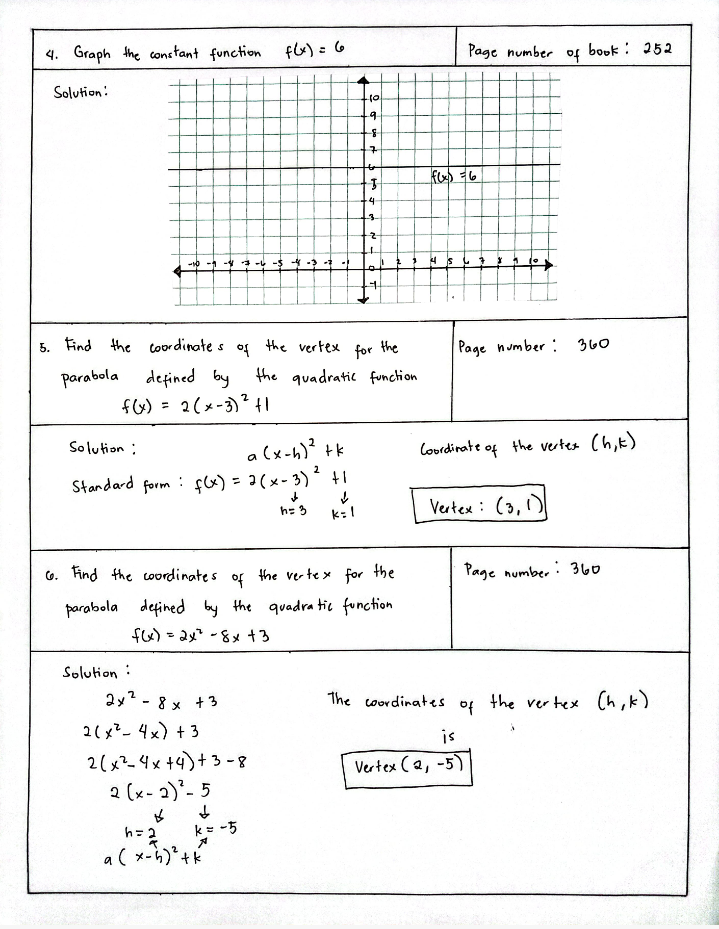 4. Graph the constant function f(x) = 6
Page number of book: 252
Solution:
10
9
8
7
6
f(x) = 6
5
4
3
2
1
-10 -9 -8 -7 -6 -5 -4 -3 -2 -1 0 1 2 3 4 5 6 7 8 9 10
-1
5. Find the coordinates of the vertex for the
parabola defined by the quadratic function
f(x) = 2(x-3)² +1
Page number: 360
Solution:
a(x-h)² +k
Standard form: f(x) = 2(x-3)² +1
↓ ↓
h=3 k=1
Coordinate of the vertex (h,k)
Vertex: (3,1)
6. Find the coordinates of the vertex for the
parabola defined by the quadratic function
f(x) = 2x² -8x +3
Page number: 360
Solution:
2x² - 8x +3
2(x² - 4x) +3
2(x²-4x+4)+3-8
2(x-2)² - 5
↓ ↓
h=2 k=-5
a(x-h)²+k
The coordinates of the vertex (h,k)
is
Vertex(2,-5)